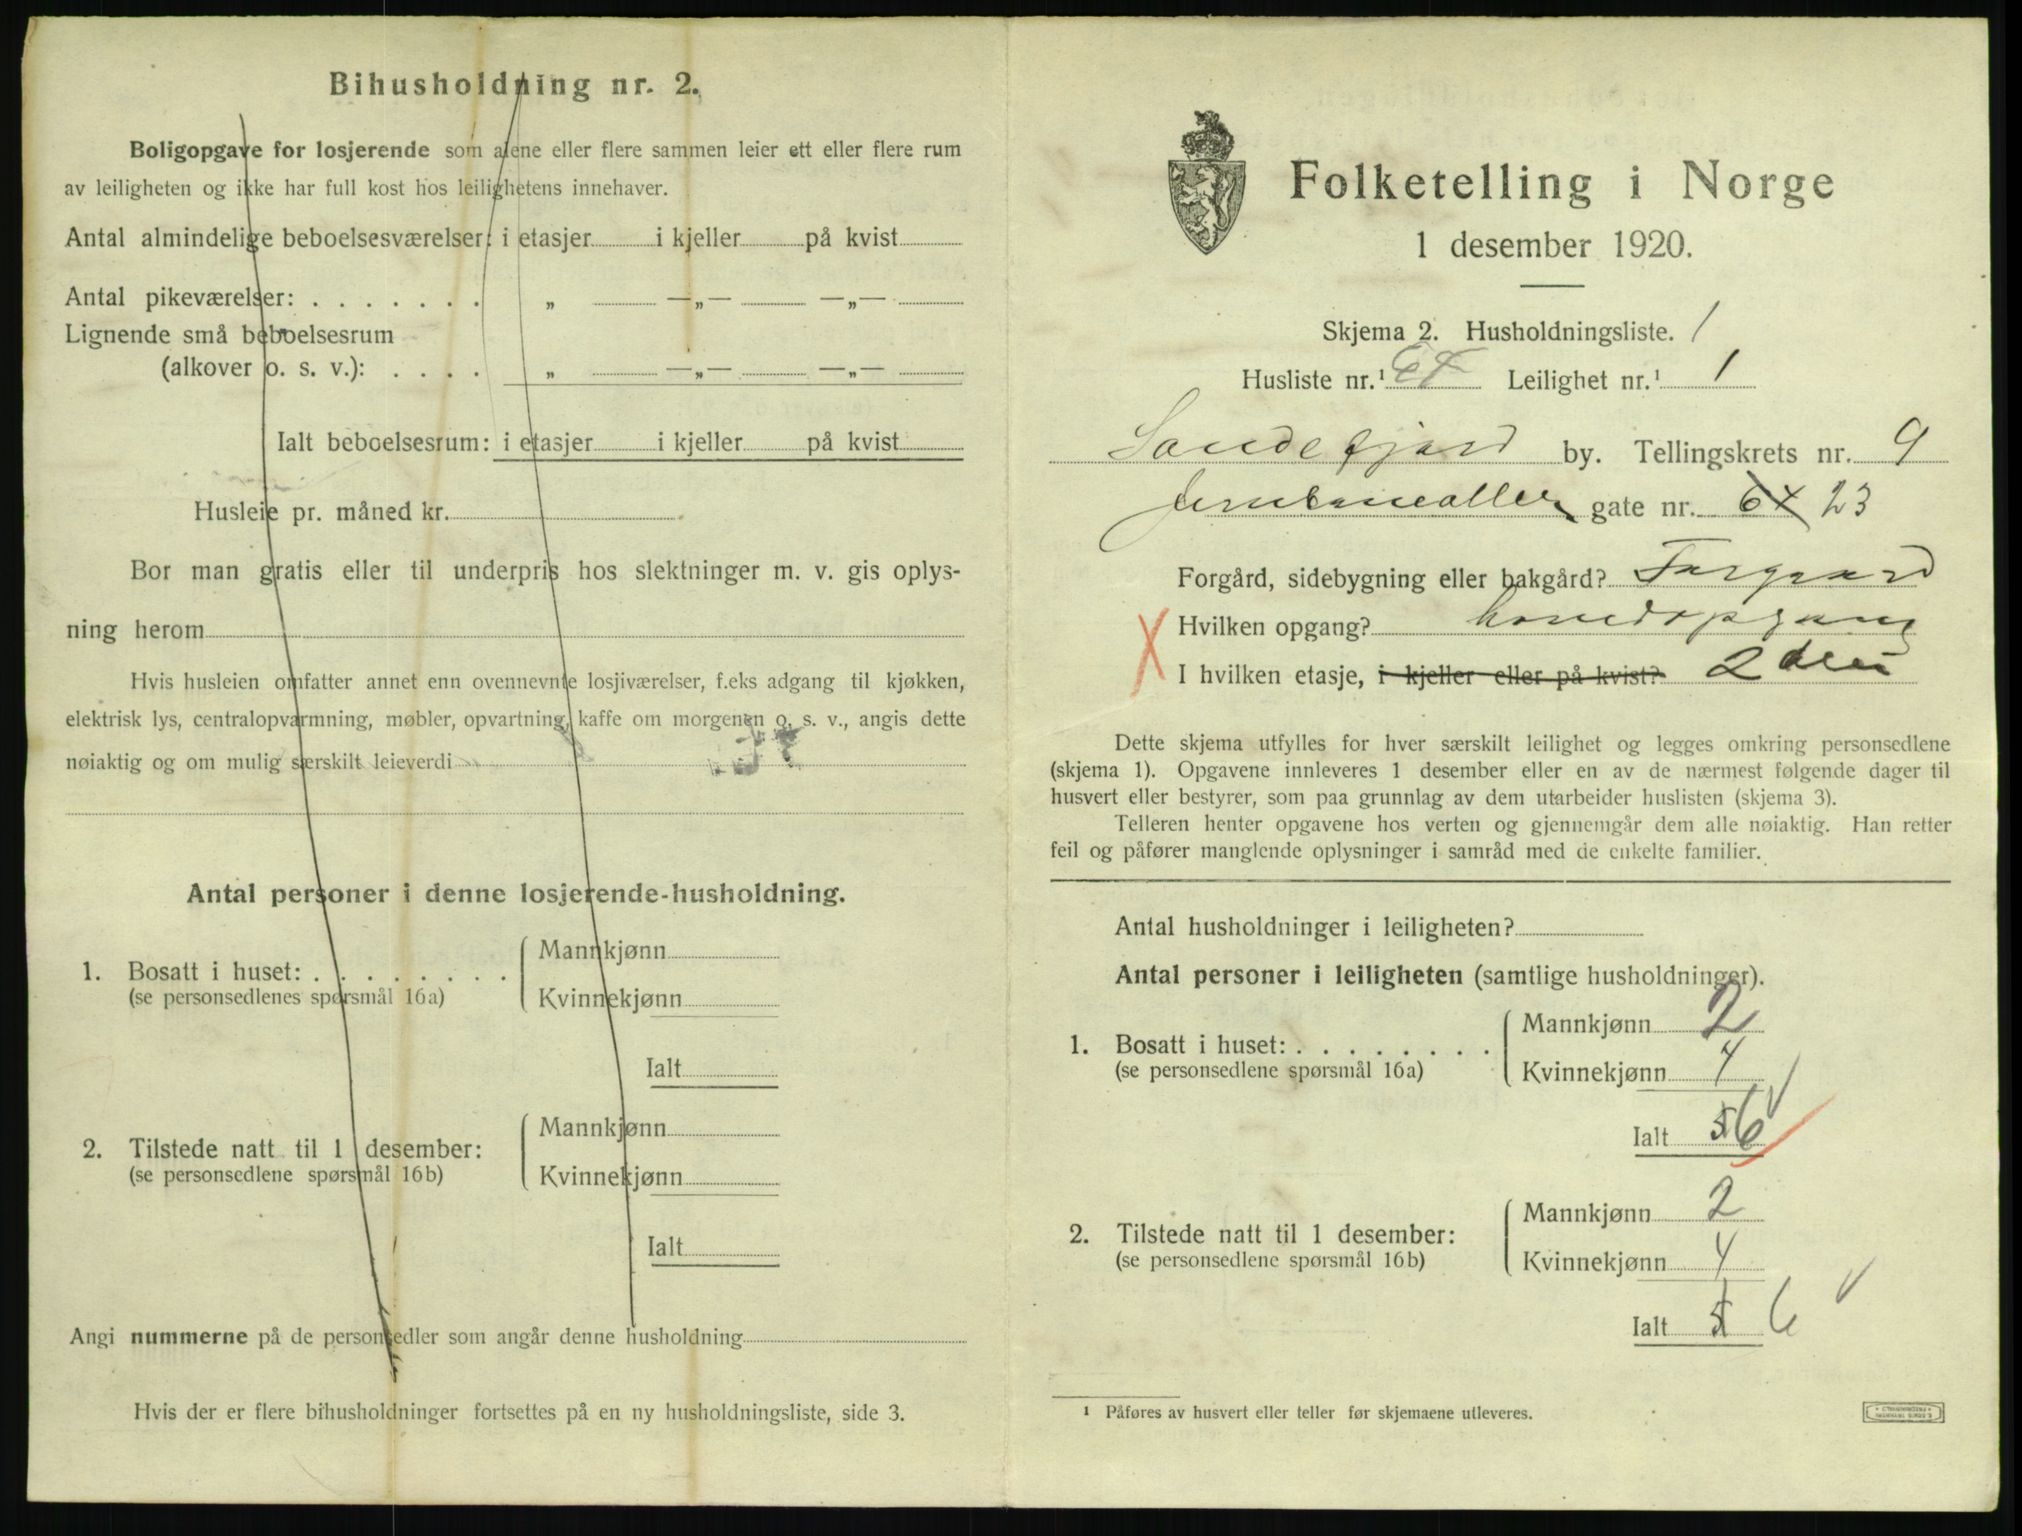 Bihusholdning nr. 2.
Boligopgave for losjerende som alene eller flere sammen leier ett eller flere rum
av leiligheten og ikke har full kost hos leilighetens innehaver.
Antal almindelige beboelsesværelser: i etasjer i kjeller på kvist
Antal pikeværelser: . . . . . . . „ —„— —„—
Lignende små beboelsesrum
(alkover o. s. v.): . . . . „ —„— —„—
Ialt beboelsesrum: i etasjer i kjeller på kvist
Husleie pr. måned kr.
Bor man gratis eller til underpris hos slektninger m. v. gis oplys-
ning herom
Hvis husleien omfatter annet enn ovennevnte losjiværelser, f.eks adgang til kjøkken,
elektrisk lys, centralopvarmning, møbler, opvartning, kaffe om morgenen o. s. v., angis dette
nøiaktig og om mulig særskilt leieverdi
Antal personer i denne losjerende-husholdning.
Mannkjønn
1. Bosatt i huset: . . . . . . . .
(se personsedlenes spørsmål 16a)
Kvinnekjønn
Ialt
Mannkjønn
2. Tilstede natt til 1 desember:
(se personsedlene spørsmål 16b)
Kvinnekjønn
Ialt
Angi nummerne på de personsedler som angår denne husholdning
Hvis der er flere bihusholdninger fortsettes på en ny husholdningsliste, side 3.
Folketelling i Norge
1 desember 1920.
Skjema 2. Husholdningsliste. 1
Husliste nr.¹ 64 Leilighet nr.¹ 1
Sandefjord by. Tellingskrets nr. 9
Jernbanealleen gate nr. 64 23
Forgård, sidebygning eller bakgård? Forgaard
Hvilken opgang? hovedopgang
X
I hvilken etasje, i kjeller eller på kvist? 2den
Dette skjema utfylles for hver særskilt leilighet og legges omkring personsedlene
(skjema 1). Opgavene innleveres 1 desember eller en av de nærmest følgende dager til
husvert eller bestyrer, som paa grunnlag av dem utarbeider huslisten (skjema 3).
Telleren henter opgavene hos verten og gjennemgår dem alle nøiaktig. Han retter
feil og påfører manglende oplysninger i samråd med de enkelte familier.
Antal husholdninger i leiligheten?
Antal personer i leiligheten (samtlige husholdninger).
Mannkjønn 2
1. Bosatt i huset: . . . . . . . .
(se personsedlene spørsmål 16a)
Kvinnekjønn 4
Ialt 5 6
Mannkjønn 2
2. Tilstede natt til 1 desember:
(se personsedlene spørsmål 16b)
Kvinnekjønn 4
Ialt 5 6
¹ Påføres av husvert eller teller før skjemaene utleveres.